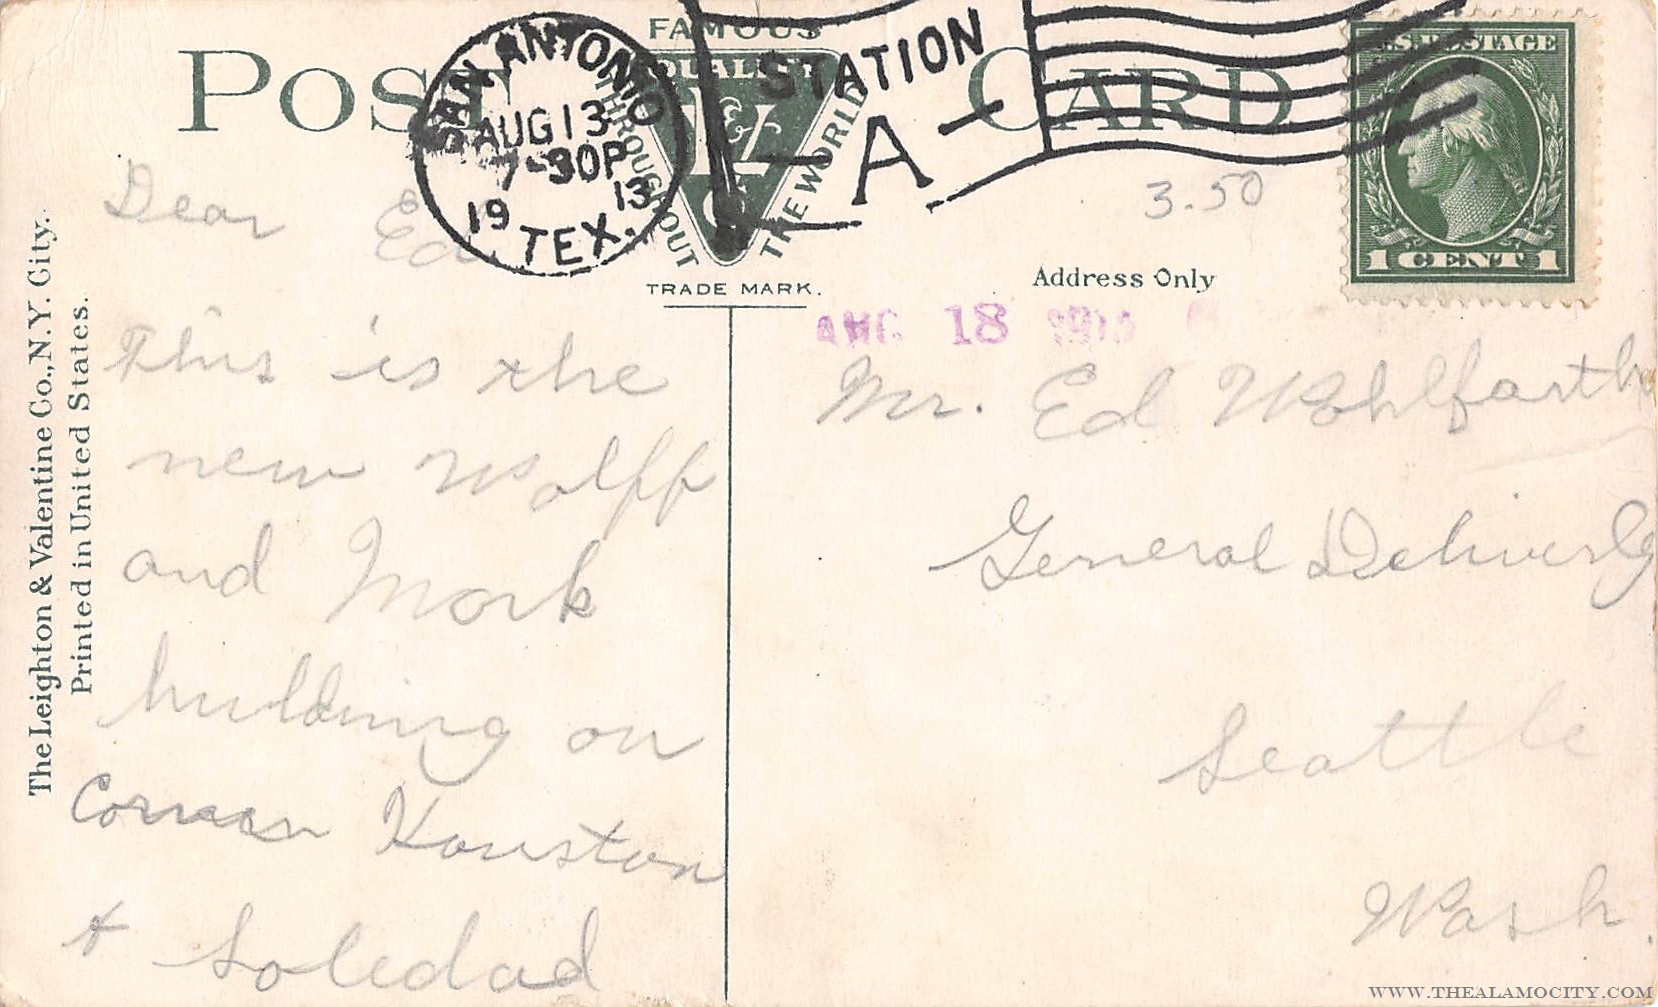 POST CARD
FAMOUS
QUALITY
THROUGHOUT THE WORLD
L & V
Co
TRADE MARK.
SAN ANTONIO
AUG 13
7-30P
19 13
TEX.
STATION
A
U.S. POSTAGE
1 CENT 1
3.50
Address Only
AUG 18 1913
The Leighton & Valentine Co., N.Y. City.
Printed in United States.
Dear Ed.
This is the
new Wolff
and Mark
building on
Corner Houston
+ Soledad
Mr. Ed Wohlfarth
General Delivery
Seattle
Wash.
WWW.THEALAMOCITY.COM